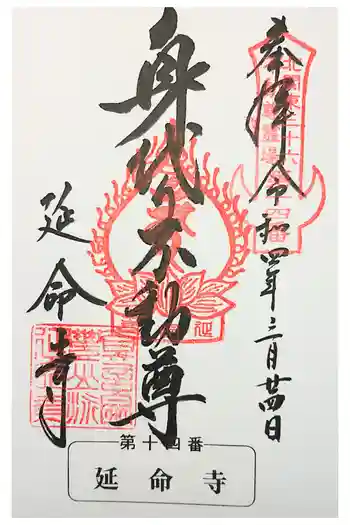 奉拝
令和四年三月廿四日
身代り不動尊
延命寺
第十四番
延命寺